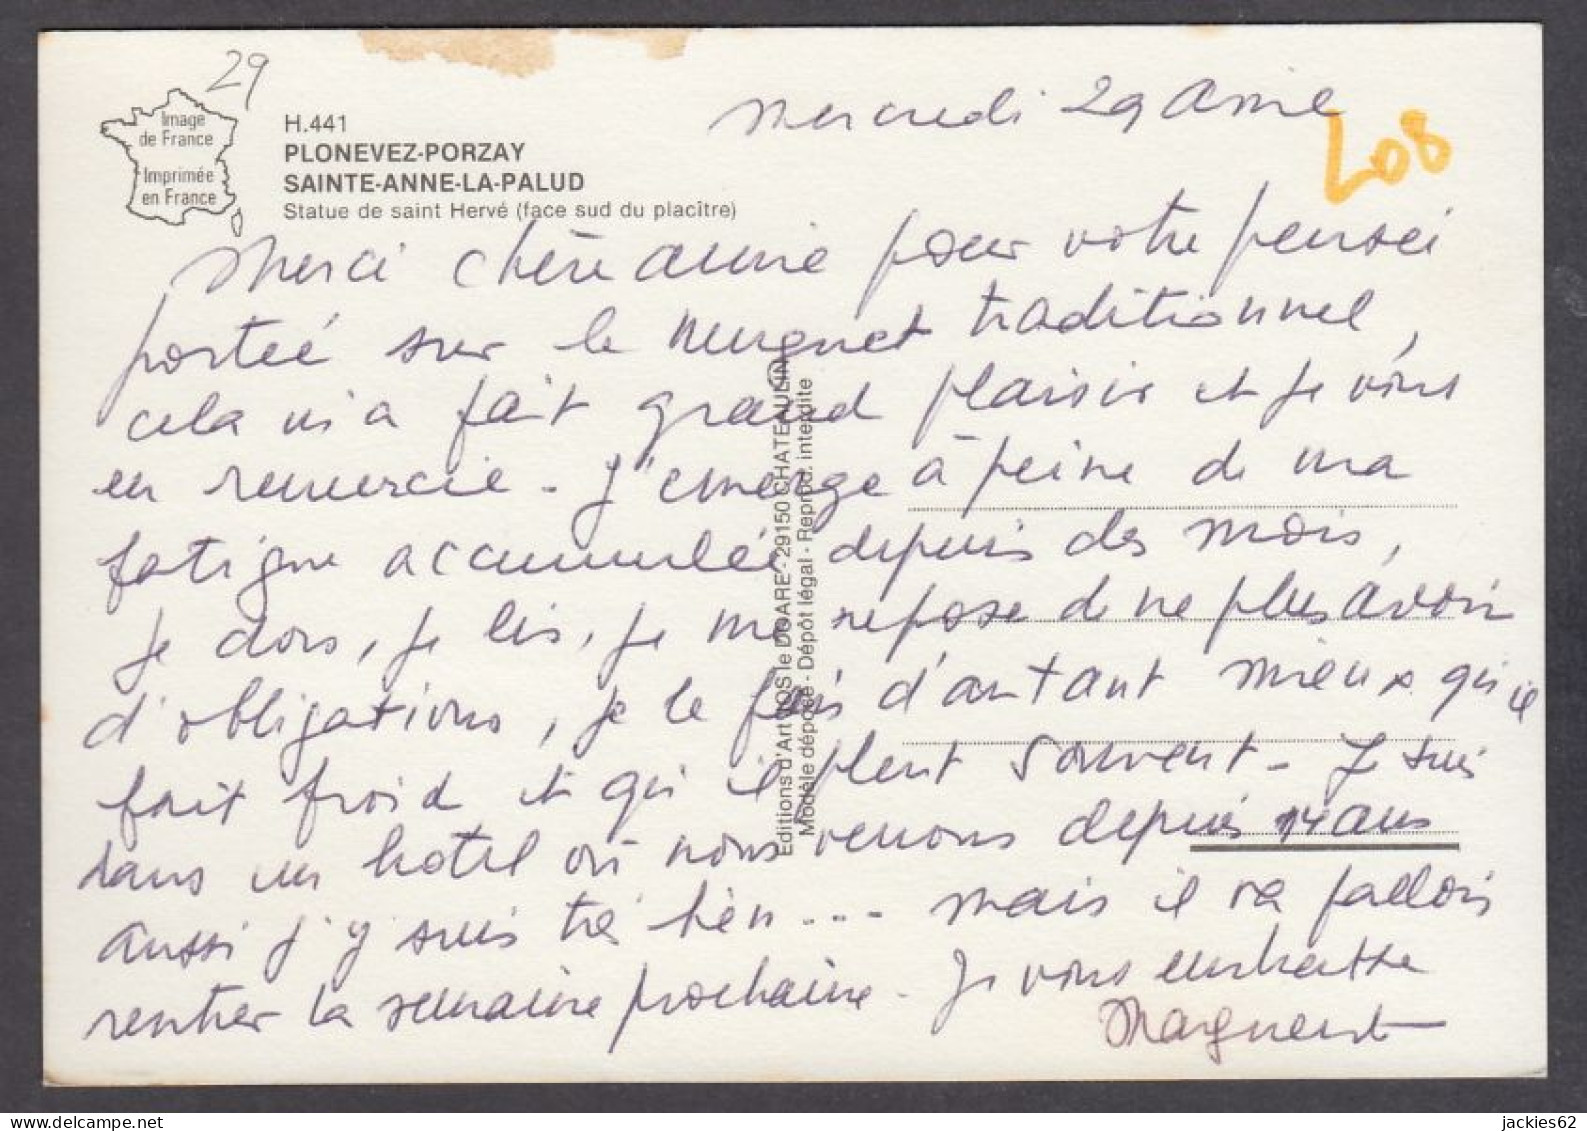 29
Image
de France
Imprimée
en France
H.441
PLONEVEZ-PORZAY
SAINTE-ANNE-LA-PALUD
Statue de saint Hervé (face sud du placître)
Mercredi 29 Avril
208
Merci chère amie pour votre pensée
portée sur le muguet traditionnel,
cela m'a fait grand plaisir et je vous
en remercie - J'émerge à peine de ma
fatigue accumulée depuis des mois,
je dors, je lis, je me repose de ne plus avoir
d'obligations, je le fais d'autant mieux qu'il
fait froid et qu'il pleut souvent - Je suis
dans un hotel où nous venons depuis 14 ans
aussi j'y suis très bien ... - mais il va falloir
rentrer la semaine prochaine - Je vous embrasse
Marguerite
Editions d'Art JOS le DOARE - 29150 CHATEAULIN
Modèle déposé - Dépôt légal - Reprod. interdite
jackies62
www.delcampe.net